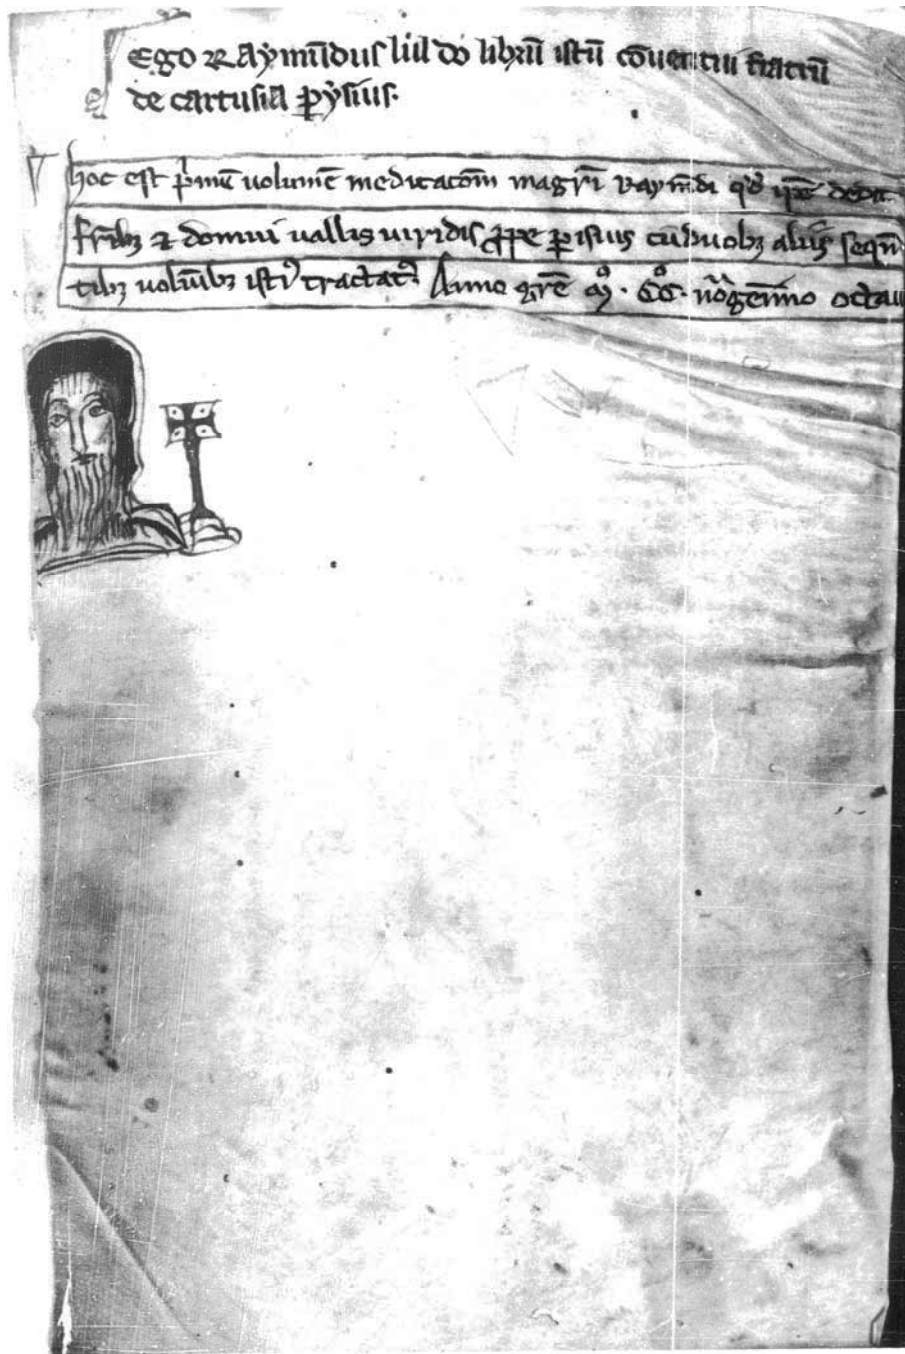 Ego Raymūdus lul do librū istū cōuentui fratrū
de cartusia p̱ysius.
hoc est p̄mū uolumē meditacōm magr̄i raym̄di qd̄ ip̄e dedit
fr̄ibꝫ ⁊ domui uallis uiridis ꝓpe p̱isius cū duobꝫ aliis seqn̄
tibꝫ uolūibꝫ istiꝰ tractatꝰ. Anno gr̄e mͦ. ccͦ. nōgen̄mo octau